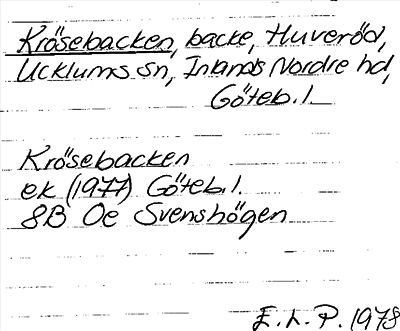 Krösebacken, backe, Huveröd,
Ucklums sn, Inlands Nordre hd,
Göteb. l.
Krösebacken
ek (1977) Göteb. l.
8B Oe Svenshögen
E. L. P. 1978